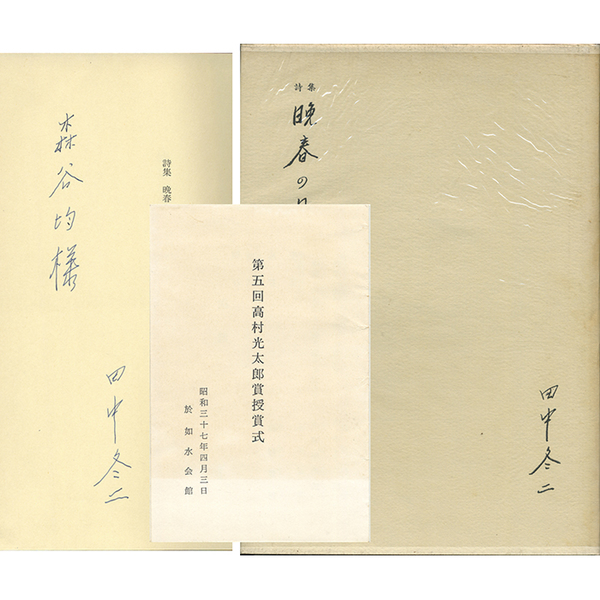 詩集
晩春の日
田中冬二
詩集 晩春
森谷均様
田中冬二
第五回高村光太郎賞授賞式
昭和三十七年四月三日
於如水会館